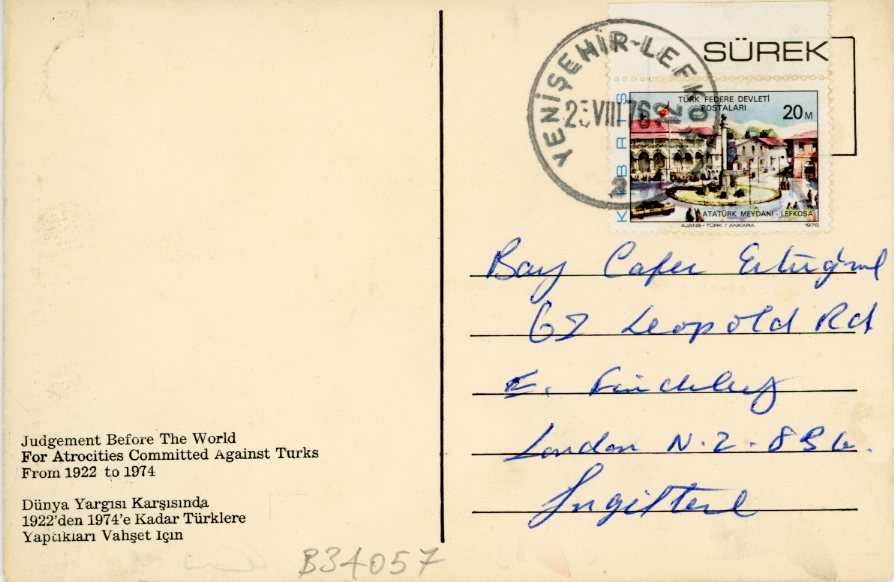 SÜREK
YENİŞEHİR-LEFKOŞA
25 VIII 76
2
KIBRIS
TÜRK FEDERE DEVLETİ
POSTALARI
20 M
ATATÜRK MEYDANI - LEFKOŞA
AJANS-TÜRK / ANKARA 1976
Bay Cafer Ertuğrul
62 Leopold Rd
E. Finchley
London N.2. 8
İngiltere
Judgement Before The World
For Atrocities Committed Against Turks
From 1922 to 1974
Dünya Yargısı Karşısında
1922'den 1974'e Kadar Türklere
Yaptıkları Vahşet İçin
B34057